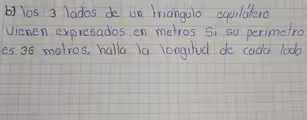 b) los 3 lados de un triángulo equilátero
vienen expresados en metros Si su perimetro
es 36 metros, halla la longitud de cada lado